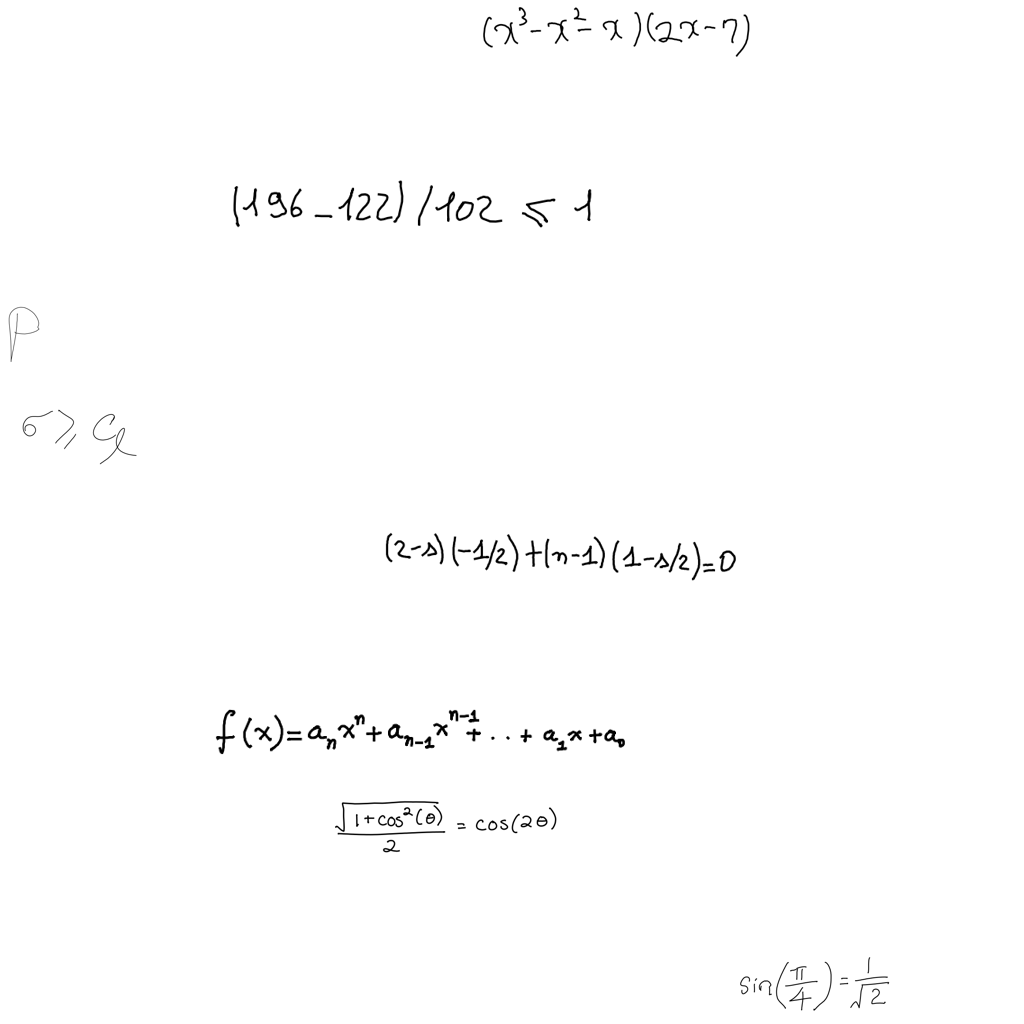 (x³-x²-x)(2x-7)
(196-122)/102 ≤ 1
P
σ ≥ Cₗ
(2-s)(-1/2)+(n-1)(1-s/2)=0
f(x)=aₙxⁿ+aₙ₋₁xⁿ⁻¹+..+a₁x+a₀
√(1+cos²(θ))/2 = cos(2θ)
sin(π/4)=1/√2